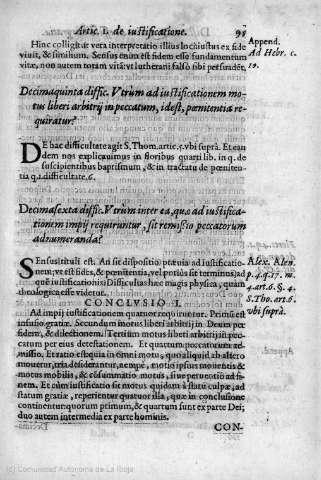 Artic. I. de iustificatione. 95
Hinc colligitur vera interpretatio illius loci iustus ex fide
viuit, & similium. Sensus enim est fidem esse fundamentum
vitæ, non autem totam vitã vt lutherani falsò sibi persuadẽt,
Append.
Ad Hebr. c.
Decimaquinta diffic. Vtrum ad iustificationem mo-
tus liberi arbitrij in peccatum, id est, pœnitentia re-
quiratur?
DE hac difficultate agit S. Thom. artic. 5. vbi suprà. Et ean
dem nos explicuimus in floribus quarti lib. in q. de
suscipientibus baptismum, & in tractatu de pœniten
tia q.1.difficultate.6.
Decimasexta diffic. Vtrùm inter ea, quæ ad iustifica-
tionem impij requiruntur, sit remissio peccatorum
adnumeranda?
SEnsus tituli est. An sit dispositio prævia ad iustificatio-
nem, vt est fides, & pœnitentia, vel potiùs sit terminus, ad
quẽ iustificationis: Difficultas hæc magis physica, quam
theologica esse videtur.
Alex. Alen.
p. 4. q. 17. m.
4. art. 6. §. 4.
S. Tho. art. 6.
vbi suprà.
CONCLVSIO I.
Ad impij iustificationem quatuor requiruntur. Primùm est
infusio gratiæ. Secundum motus liberi arbitrij in Deum per
fidem, & dilectionem. Tertium motus liberi arbitrij in pec-
catum per eius detestationem. Et quartum peccatorum re-
missio. Et ratio est quia in omni motu, quo aliquid ab altero
mouetur, tria desiderantur, nempè, motio ipsius mouentis &
motus mobilis, & consummatio motus, siue peruentio ad fi-
nem. Et cùm iustificatio sit motus quidam à statu culpæ, ad
statum gratiæ, reperientur quatuor illa, quæ in conclusione
continentur quorum primum, & quartum sunt ex parte Dei;
duo autem intermedia ex parte hominis.
CON-
(c) Comunidad Autónoma de La Rioja